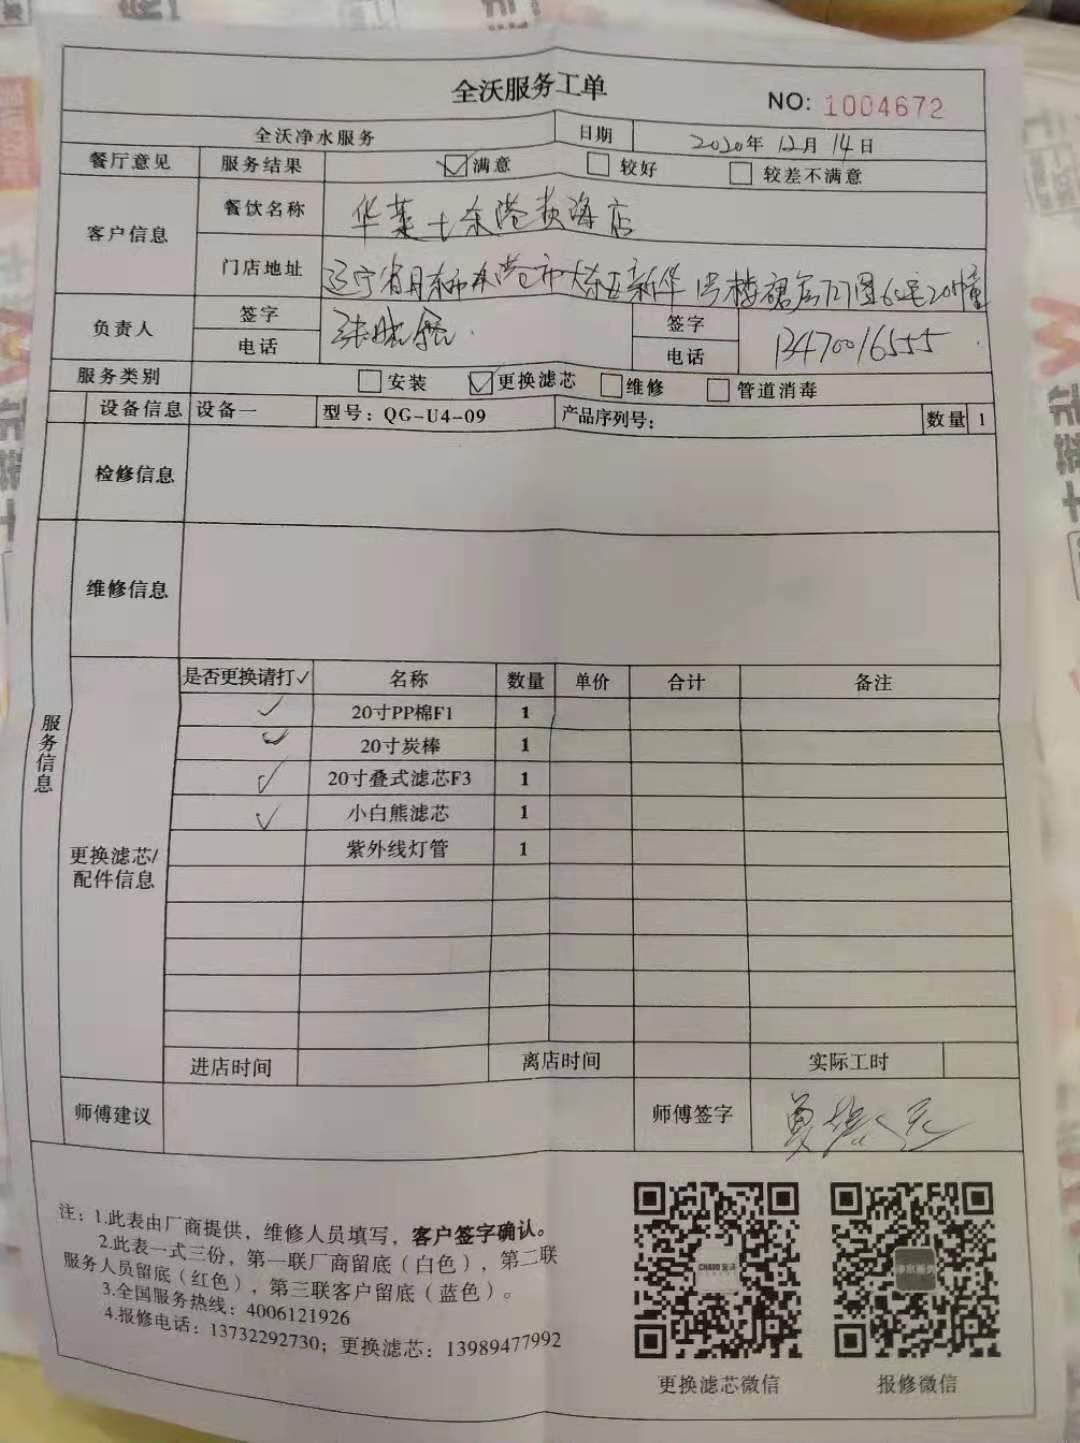 全沃服务工单
NO: 1004672
全沃净水服务 日期 2020年 12月 14日
餐厅意见 服务结果 满意 较好 较差不满意
客户信息 餐饮名称 华莱士东港黄海店
门店地址 辽宁省丹东市东港市大东区新华 号楼
负责人 签字 签字
电话 电话 13470016555
服务类别 安装 更换滤芯 维修 管道消毒
设备信息 设备一 型号：QG-U4-09 产品序列号： 数量 1
检修信息
维修信息
服务信息
是否更换请打✓ 名称 数量 单价 合计 备注
✓ 20寸PP棉F1 1
✓ 20寸炭棒 1
✓ 20寸叠式滤芯F3 1
✓ 小白熊滤芯 1
更换滤芯/配件信息
紫外线灯管 1
进店时间 离店时间 实际工时
师傅建议 师傅签字
注：1.此表由厂商提供，维修人员填写，客户签字确认。
2.此表一式三份，第一联厂商留底（白色），第二联
服务人员留底（红色），第三联客户留底（蓝色）。
3.全国服务热线：4006121926
4.报修电话：13732292730；更换滤芯：13989477992
更换滤芯微信 报修微信